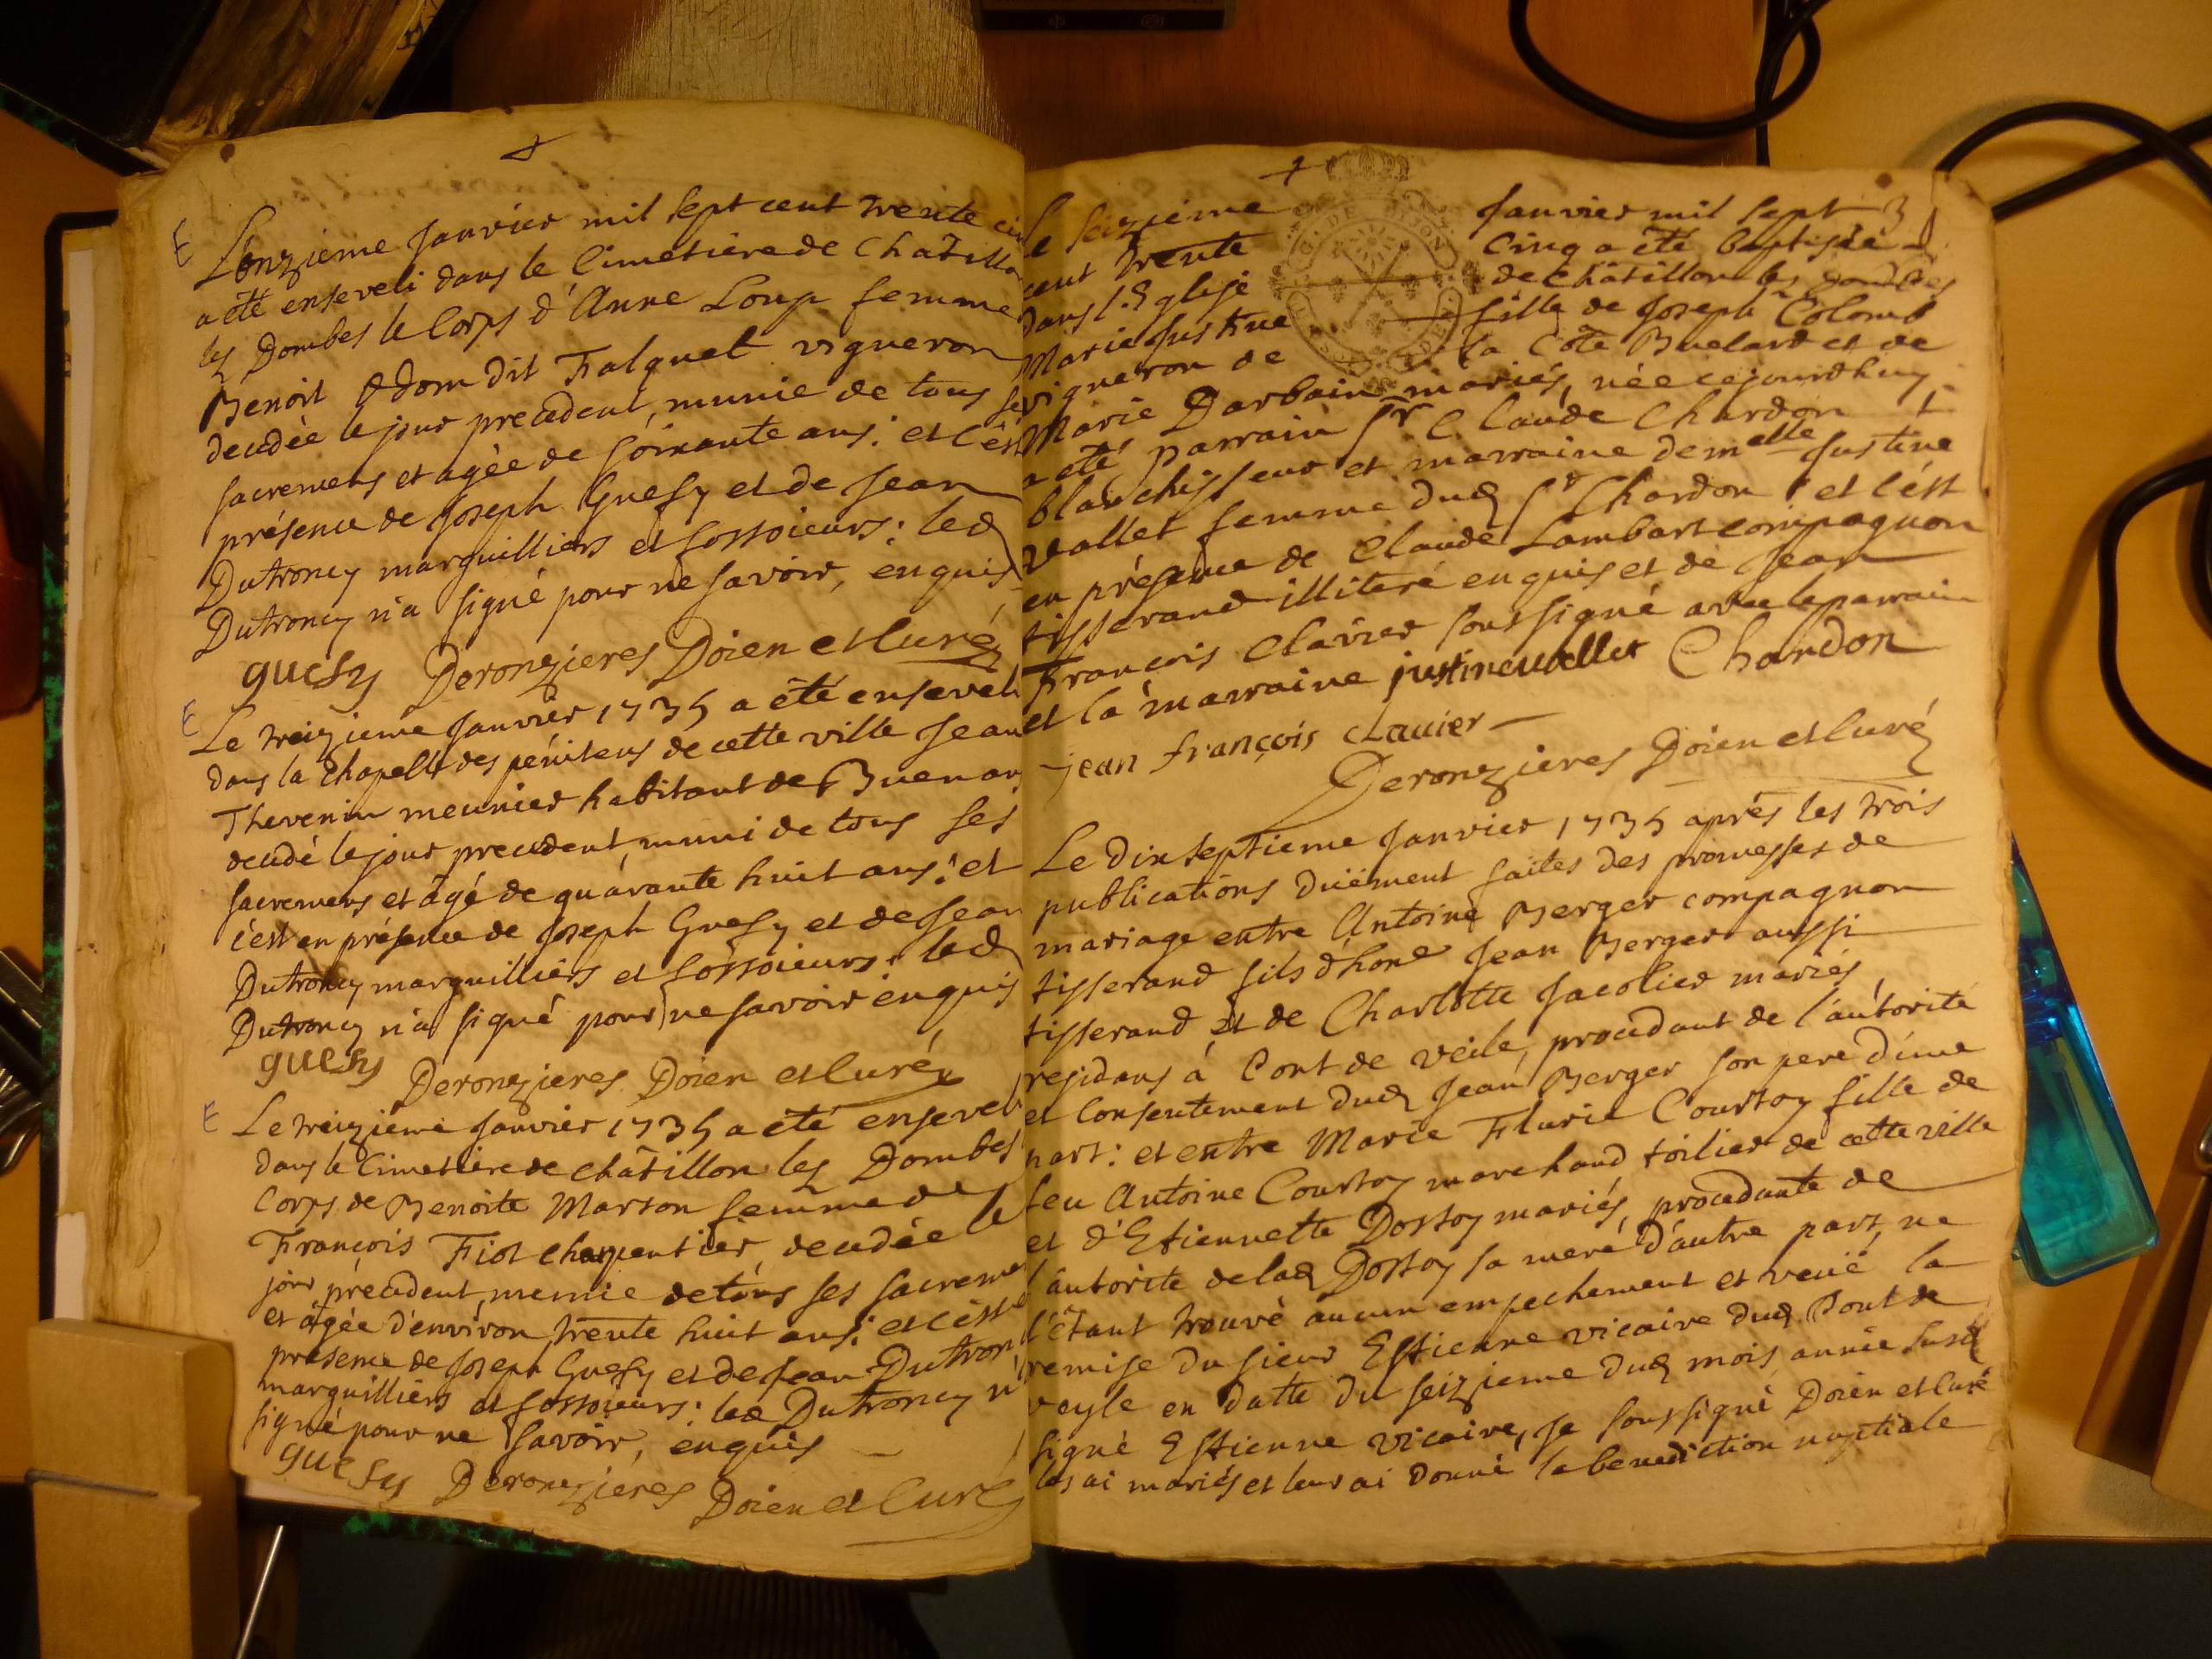 E
L'onzieme Janvier mil sept cent trente
a été enseveli dans le Cimetière de Châtillon
les Dombes le Corps d'Anne Loup femme
Benoit Odom dit Falquet vigneron
decedée le jour precedent, munie de tous ses
sacremens et agée de soixante ans : et c'est
présence de Joseph Guesy et de Jean
Dutroncy marguilliers et fossoieurs : led
Dutroncy n'a signé pour ne savoir, enquis
guesy Deronzieres Doien et Curé
E
Le treizieme Janvier 1735 a été enseveli
dans la Chapelle des pénitens de cette ville Jean
Thevenin meunier habitant de Buenans
decedé le jour precedent, muni de tous ses
sacremens et âgé de quarante huit ans : et
c'est en présence de Joseph Guesy et de Jean
Dutroncy marguilliers et fossoieurs : led
Dutroncy n'a signé pour ne savoir enquis
guesy
Deronzieres Doien et Curé
E
Le treizieme Janvier 1735 a été enseveli
dans le Cimetière de châtillon les Dombes
Corps de Benoite Marson femme de
François Fiot charpentier, decedée le
jour précedent, munie de tous ses sacremens
et âgée d'environ trente huit ans : et c'est
présence de Joseph Guesy et de Jean Dutroncy
marguilliers et fossoieurs : led Dutroncy n'a
signé pour ne savoir, enquis
guesy Deronzières Doien et Curé
Le seizieme Janvier mil sept 3
cent trente cinq a été baptisée
dans l'Eglise de châtillon les Dombes
Marie Justine fille de Joseph Colomb
vigneron de la Côte Buelard et de
Marie Darbain mariés, née cejourdhuy
a été parrain Sr. Claude Chardon
blanchisseur et marraine demelle Justine
vallet femme dud Sr Chardon : et c'est
en présence de Claude Lambart compagnon
tisserand illiteré enquis et de Jean
François Clavier soussigné avec le parrain
et la marraine justine vallet Chardon
jean françois clavier
Deronzieres Doien et Curé
Le dix septieme Janvier 1735 aprés les trois
publications duëment faites des promesses de
mariage entre Antoine Berger compagnon
tisserand fils d'hone Jean Berger aussi
tisserand et de Charlotte Jacolier mariés
residans à Pont de veile, procedant de l'autorité
et consentement dud Jean Berger son pere d'une
part : et entre Marie Flurie Courtoy fille de
feu Antoine Courtoy marchand toilier de cette ville
et d'Etiennette Dostoy mariés, procedante de
l'autorite de lad Dostoy sa mere d'autre part, ne
s'étant trouvé aucun empechement et veüe la
remise du sieur Estienne vicaire dud Pont de
veyle en datte du seizieme dud mois année susd
signé Estienne vicaire, Je soussigné Doien et Curé
les ai mariés et leur ai donné la benediction nuptiale